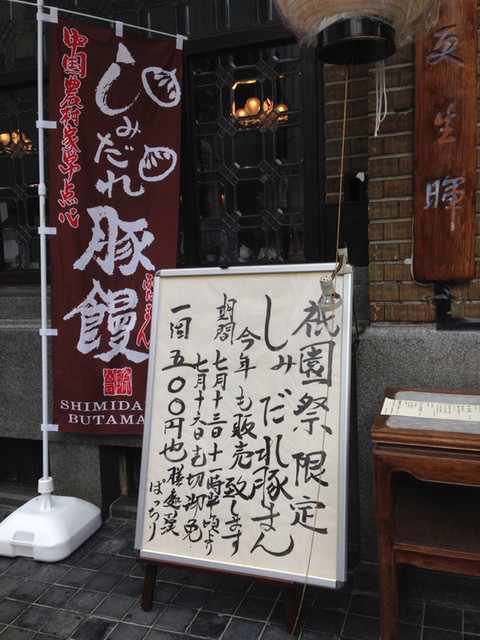 中国農村家常点心
しみだれ豚饅
ぶたまん
SHIMIDA
BUTAMA
祇園祭限定
しみだれ豚まん
今年も販売致します
期間 七月十三日十一時半頃より
七月十六日売切御免
一個 五〇〇円也 膳處漢
ぽっちり